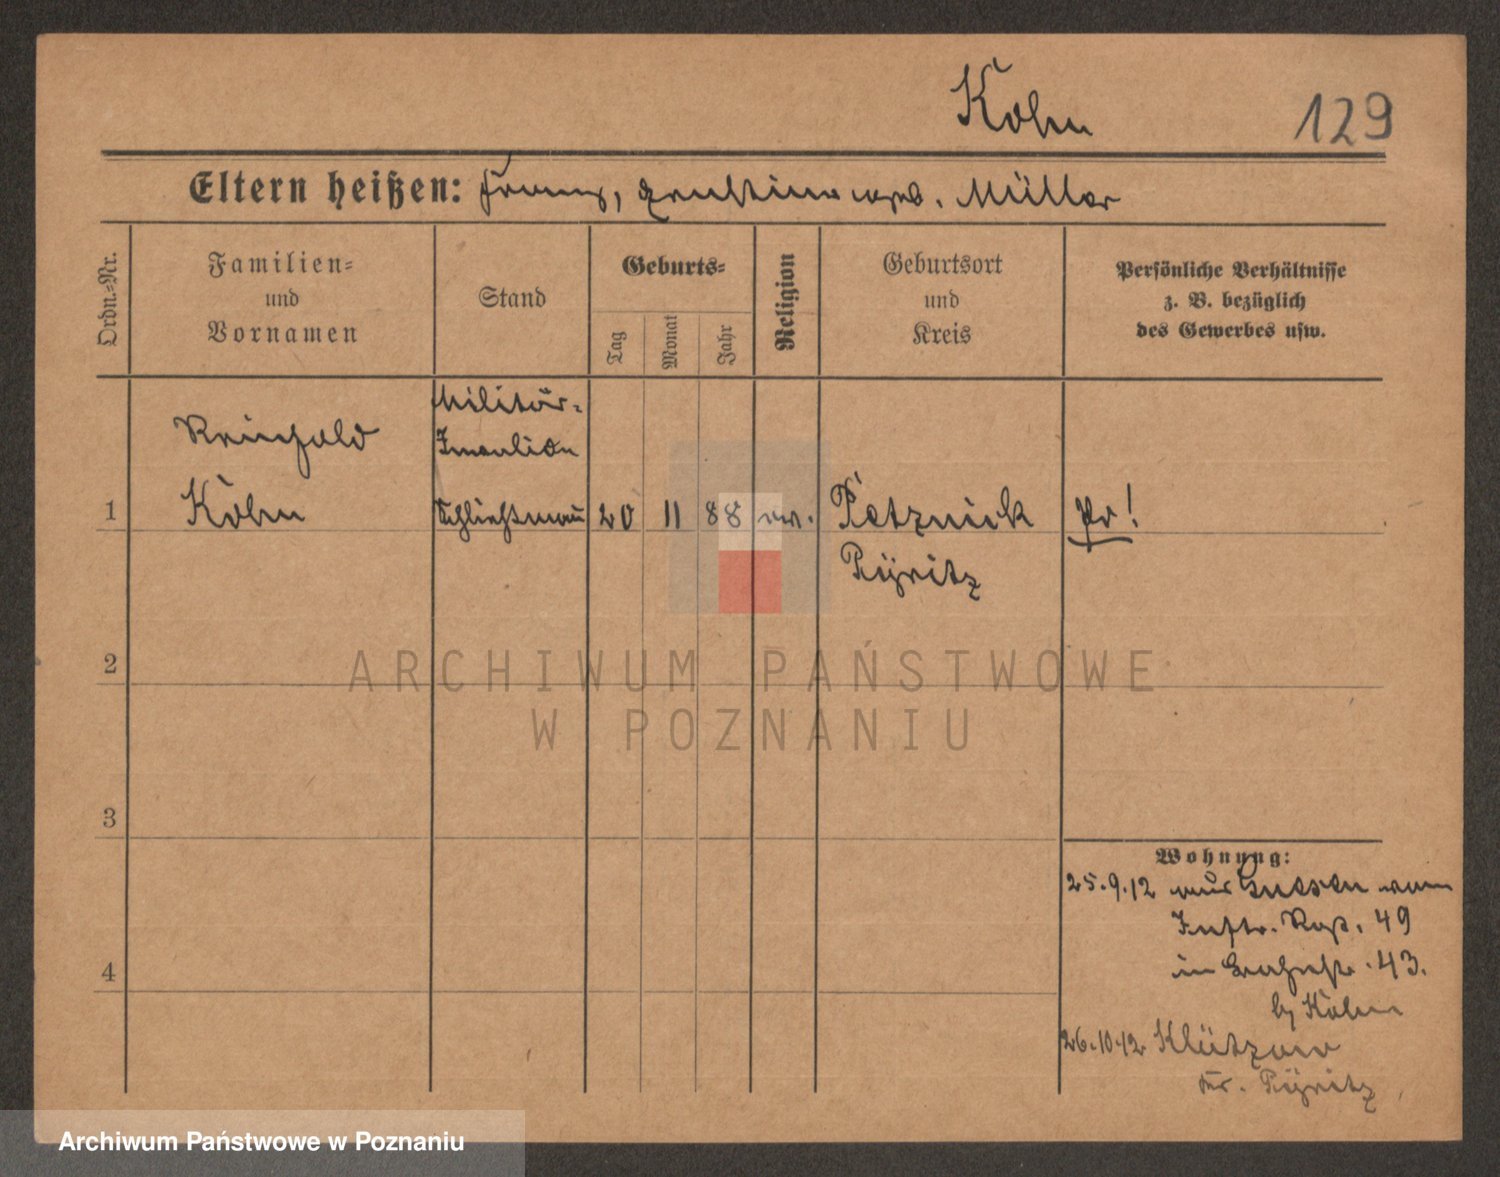 Köhn
129
Eltern heißen: Franz, Ernstine geb. Müller
Ordn.-Nr.
Familien-
und
Vornamen
Stand
Geburts-
Tag
Monat
Jahr
Religion
Geburtsort
und
Kreis
Persönliche Verhältnisse
z. B. bezüglich
des Gewerbes usw.
Militär-
Reinhold
Invaliden
1
Köhn
20
11
88
ev.
Petznick
Pr!
Pyritz
2
ARCHIWUM PAŃSTWOWE
W POZNANIU
3
Wohnung:
25.9.12 aus Gnesen vom
Inftr. Rgt. 49
4
in 43.
b/ Köhn
26.10.12. Klützow
Kr. Pyritz
Archiwum Państwowe w Poznaniu